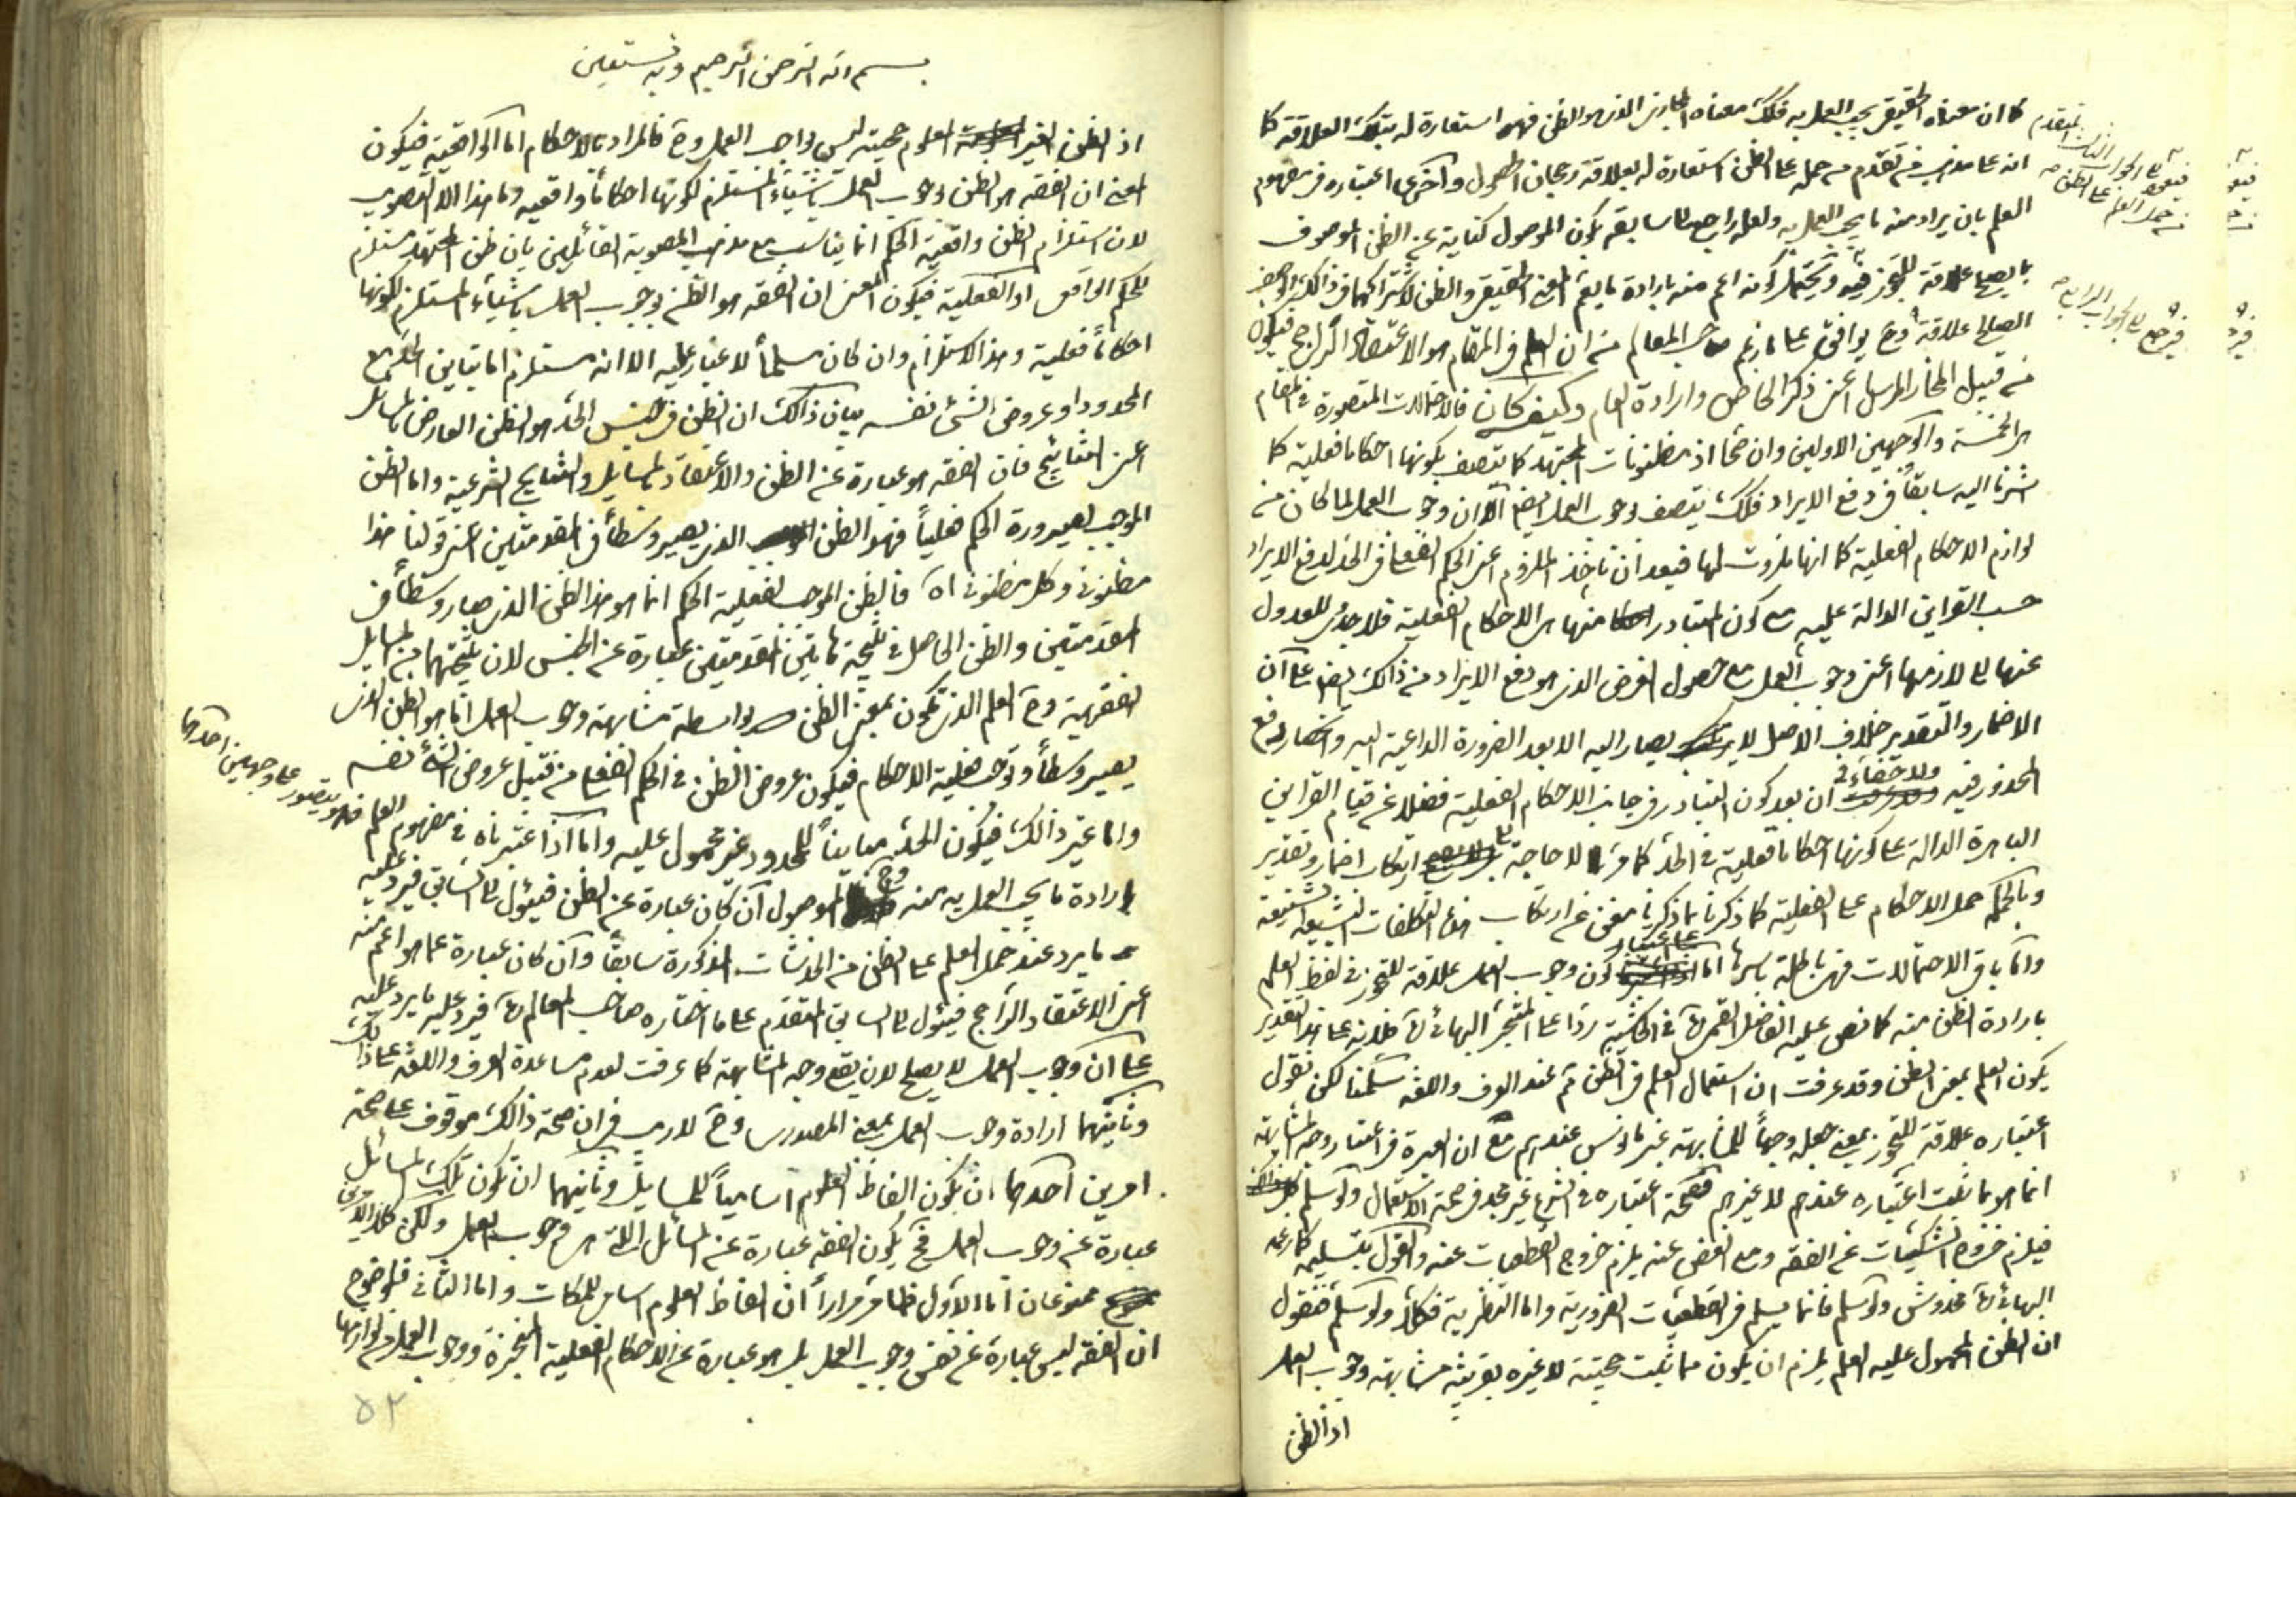 كما ان معناه الحقيقي يجب العمل به فكك معناه المجازي الذي هو الظن فهو استعارة له بتلك العلاقة كما
انه على مذهب من تقدم من حمله على الظن استعارة له بعلاقة رجحان الحصول واخرى اعتباره في مفهوم
العلم بان يراد منه ما يجب العمل به ولعله راجع الى سابقه بكون الموصول كناية عن الظن الموصوف
بما يصلح علاقة للتجوز فيه ويحتمل كونه اعم منه بارادة ما يعم المعنى الحقيقي والظن لاشتراكهما في ذلك الوصف
الصالح علاقة وح يوافق على ما زعم صاحب المعالم من ان العلم في المقام هو الاعتقاد الراجح فيكون
من قبيل المجاز المرسل اعني ذكر الخاص وارادة العام وكيف كان فالاحتمالات المتصورة في المقام
هي الخمسة والوجهين الاولين وان صحا اذ مظنونات المجتهد كما يتصف بكونها احكاما فعلية كما
اشرنا اليه سابقا في دفع الايراد فكك يتصف بوجوب العمل ايضا الا ان وجوب العمل لما كان من
لوازم الاحكام الفعلية كما انها ملزومة لها فبعد ان ناخذ الملزوم اعني الحكم الفعلي في الحد لدفع الايراد
حسب القراين الدالة عليه مع كون المتبادر منها هي الاحكام الفعلية فلا جدوى للعدول
عنها الى لازمها اعني وجوب العمل مع حصول الغرض الذي هو دفع الايراد من ذلك ايضا على ان
الاضمار والتقدير خلاف الاصل لا يصار اليه الا بعد الضرورة الداعية اليه وانحصار دفع
المحذور فيه ولا خفاء في ان بعد كون التبادر في جانب الاحكام الفعلية فضلا عن قيام القراين
الباهرة الدالة على كونها احكاما فعلية في الحد كما مر لا حاجة الى ارتكاب اضمار وتقدير
وبالجملة حمل الاحكام على الفعلية كما ذكرنا بما ذكرنا مغني عن ارتكاب هذه التكلفات الشنيعة
واما باقي الاحتمالات فهي باطلة باسرها اما على اعتبار كون وجوب العمل علاقة للتجوز في لفظ العلم
بارادة الظن منه كما نص عليه الفاضل القمي ره في الحاشية ردا على المتبحر البهائي ره فلانه على هذا التقدير
يكون العلم بمعنى الظن وقد عرفت ان استعمال العلم في الظن ثم عند العرف واللغة سلمنا لكن نقول
اعتباره علاقة للتجوز بمعنى جعله وجها للمشابهة غير مانوس عندهم مع ان العبرة في اعتبار وجه المشابهة
انما هو بما ثبت اعتباره عندهم لا غيرهم فصحة اعتباره في الشرع غير مجد في صحة الاستعمال ولو سلم
فيلزم خروج الشكيات عن الفقه ومع الغض عنه يلزم خروج القطعيات عنه والقول بتسليمه كما زعمه
البهائي ره مخدوش ولو سلم فانما يسلم في القطعيات الضرورية واما النظرية فكلا ولو سلم فنقول
ان الظن المحمول عليه العلم يلزم ان يكون مما ثبت حجيته لا غيره بقرينة مشابهته وجوب العمل
اذ الظن
فيعود الى الجواب الثالث المتقدم
من حمل العلم على الظن
فيرجع الى الجواب الرابع
بسم الله الرحمن الرحيم وبه نستعين
اذ الظن الغير المعلوم حجيته ليس بواجب العمل وح فالمراد بالاحكام اما الواقعية فيكون
المعنى ان الفقه هو الظن بوجوب العمل باشياء المستلزم لكونها احكاما واقعية وما هذا الا التصويب
لان استلزام الظن واقعية الحكم انما يناسب مع مذهب المصوبة القائلين بان ظن المجتهد مستلزم
للحكم الواقعي او الفعلية فيكون المعنى ان الفقه هو الظن بوجوب العمل باشياء المستلزم لكونها
احكاما فعلية وهذا الاستلزام وان كان مسلما لا غبار عليه الا انه مستلزم اما تباين الحد مع
المحدود او عروض الشئ نفسه بيان ذلك ان الظن في جنس الحد هو الظن العارض بالمسائل
اعني النتايج فان الفقه هو عبارة عن الظن والاعتقاد بالمسايل والنتايج الشرعية واما الظن
الموجب لصيرورة الحكم فعليا فهو الظن الذي يصير وسطا في المقدمتين اعني قولنا هذا
مظنوني وكل مظنوني اه فالظن الموجب لفعلية الحكم انما هو هذا الظن الذي صار وسطا في
المقدمتين والظن الحاصل في نتيجة هاتين المقدمتين عبارة عن الجنس لان نتيجتهما من المسايل
الفقهية وح العلم الذي يكون بمعنى الظن بواسطة مشابهته وجوب العمل انما هو الظن الذي
يصير وسطا وتوجب فعلية الاحكام فيكون عروض الظن في الحكم الفعلي من قبيل عروض الشئ نفسه
واما غير ذلك فيكون الحد مباينا للمحدود غير محمول عليه واما اذا اعتبرناه في مفهوم العلم فهو يتصور على وجهين احدهما
ارادة ما يجب العمل به منه وح الموصول ان كان عبارة عن الظن فيئول الى السابق فيرد عليه
ما يرد عند حمل العلم على الظن من الخدشات المذكورة سابقا وان كان عبارة عما هو اعم منه
اعني الاعتقاد الراجح فيئول الى السابق المتقدم على ما اختاره صاحب المعالم ره فيرد عليه ما يرد عليه
على ان وجوب العمل لا يصلح لان يقع وجه المشابهة كما عرفت لعدم مساعدة العرف واللغة على ذلك
وثانيهما ارادة وجوب العمل بمعنى المصدري وح لا ريب في ان صحة ذلك موقوف على صحة
امرين احدهما ان يكون الفاظ العلوم اساميا للمسايل وثانيهما ان تكون تلك المسائل
عبارة عن وجوب العمل فح يكون الفقه عبارة عن المسائل التي هي وجوب العمل ولكن كلا الامرين
ممنوعان اما الاول فلما مر مرارا ان الفاظ العلوم اسامي للملكات واما الثاني فلوضوح
ان الفقه ليس عبارة عن نفس وجوب العمل بل هو عبارة عن الاحكام الفعلية المنجزة ووجوب العمل من لوازمها
۵۲